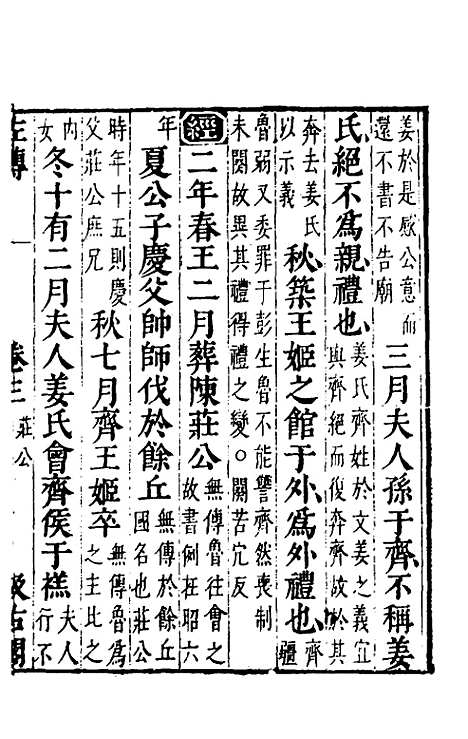 姜於是感公意而
還不書不告廟
三月夫人孫于齊不稱姜
氏絕不爲親禮也
姜氏齊姓於文姜之義宜
與齊絕而復奔齊故於其
奔去姜氏
以示義
秋築王姬之館于外爲外禮也
齊
疆
魯弱又委罪于彭生魯不能讐齊然喪制
未闋故異其禮得禮之變○闋苦穴反
經二年春王二月葬陳莊公
無傳魯往會之
故書例在昭六
年
夏公子慶父帥師伐於餘丘
無傳於餘丘
國名也莊公
時年十五則慶
父莊公庶兄
秋七月齊王姬卒
無傳魯爲
之主比之
內
女
冬十有二月夫人姜氏會齊侯于禚
夫人
行不
左傳 一 卷三 莊公 汲古閣